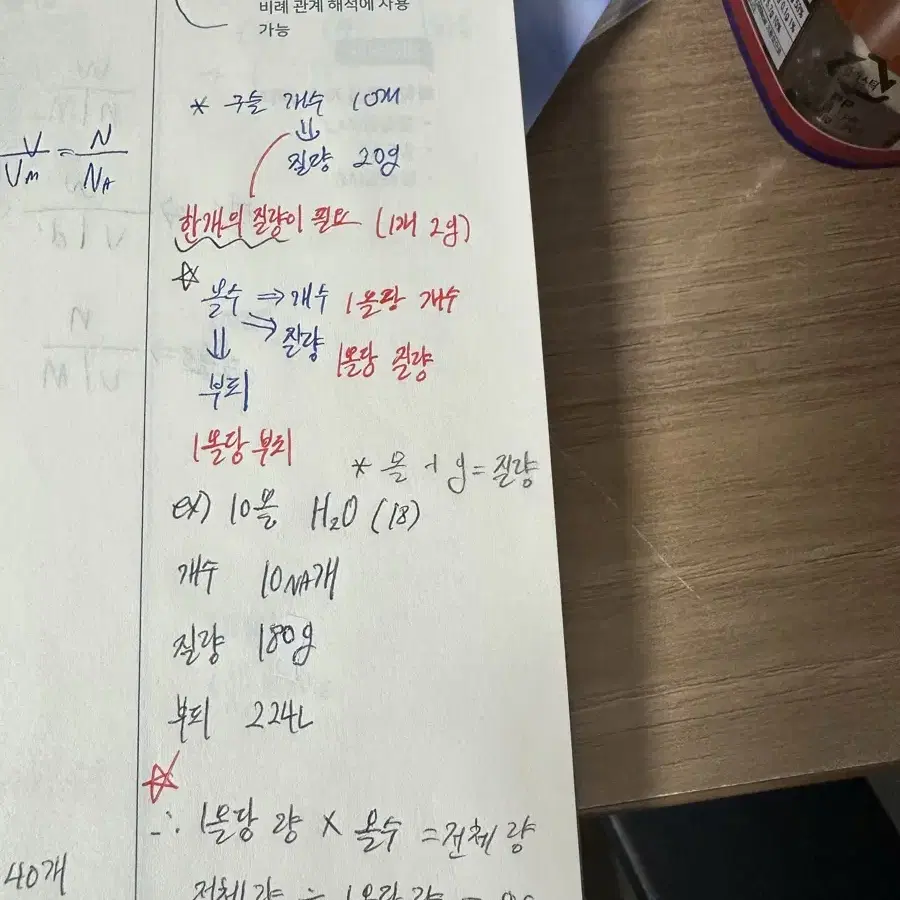 비례 관계 해석에 사용
가능
* 구슬 개수 10개
⇓
질량 20g
V/VM = N/NA
한개의 질량이 필요 (1개 2g)
☆ 몰수 ⇒ 개수 1몰당 개수
⇒ 질량 1몰당 질량
⇓
부피
1몰당 부피
* 몰 + g = 질량
ex) 10몰 H₂O (18)
개수 10NA개
질량 180g
부피 224L
☆
∴ 1몰당 량 × 몰수 = 전체 량
40개
전체 량 ÷ 1몰당 량 =